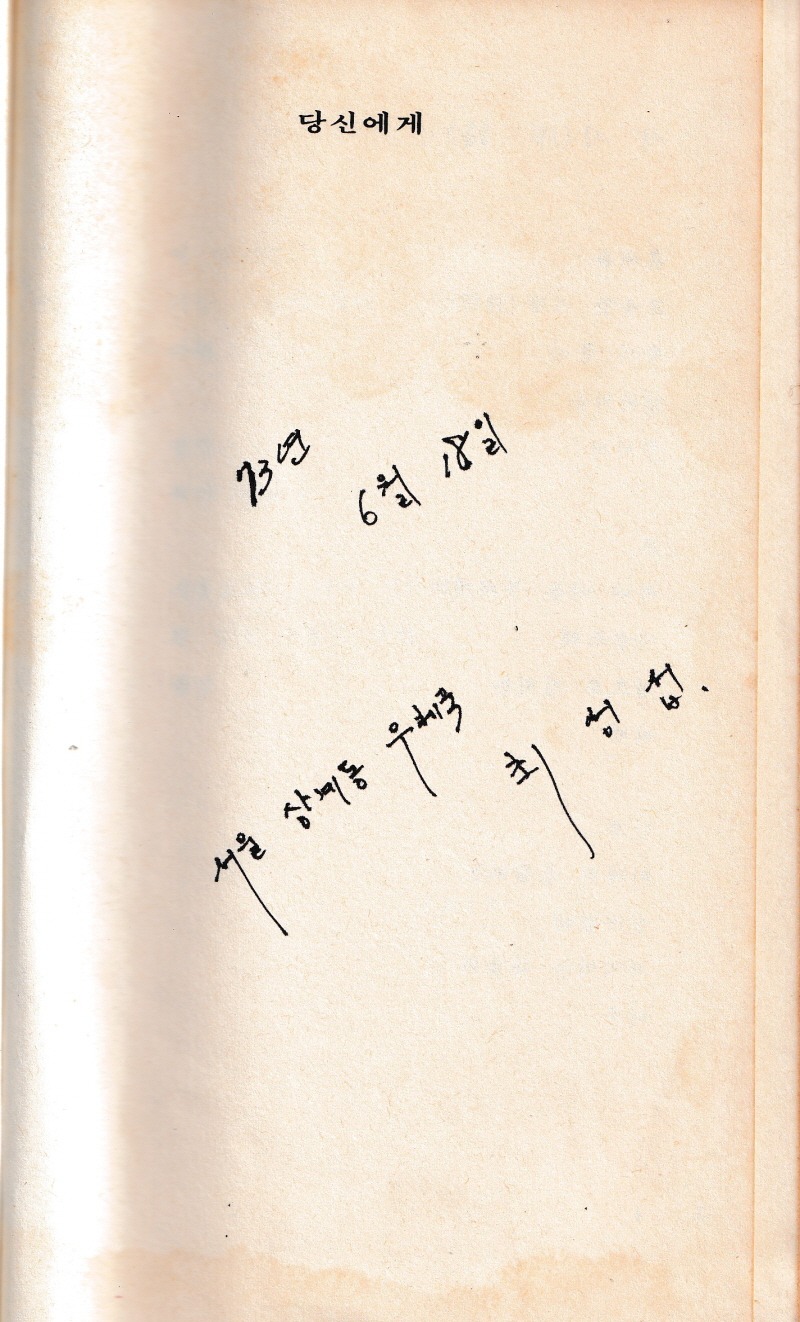 당신에게
73년 6월 18일
서울 상계동 우체국
최 성 섭.